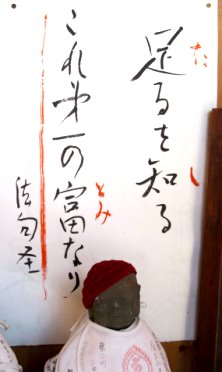 足るを知る
た
し
これ第一の富なり
とみ
法句圣